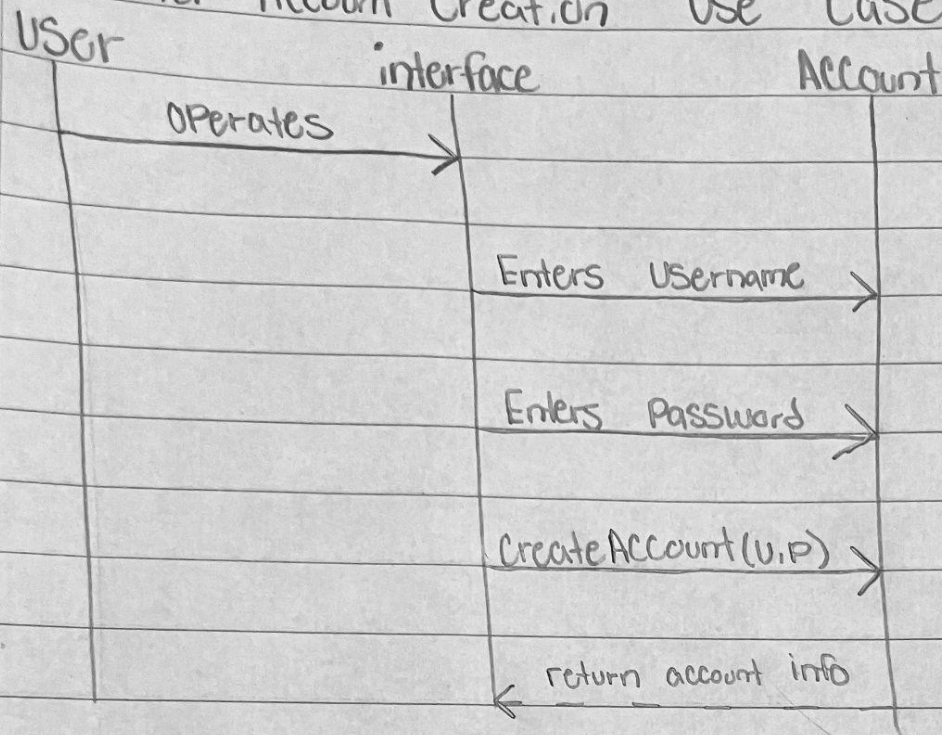 Account Creation Use Case
User interface Account
Operates
Enters Username
Enters Password
CreateAccount(U,P)
return account info